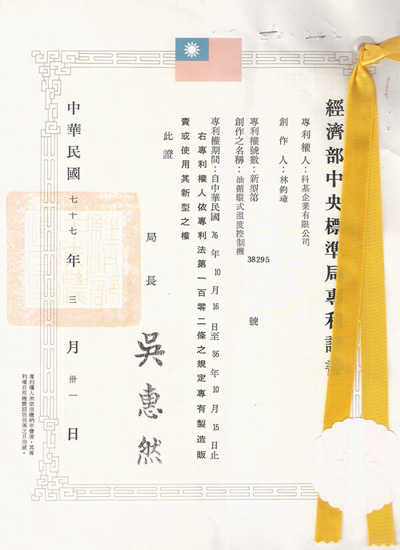 經濟部中央標準局專利證書
專利權人：科基企業有限公司
創作人：林鈞璋
專利權號數：新型第 38295 號
創作之名稱：油循環式溫度控制機
專利權期間：自中華民國76年10月16日至86年10月15日止
右專利權人依專利法第一百零二條之規定專有製造販
賣或使用其新型之權
此證
局長 吳惠然
中華民國七十七年三月卅一日